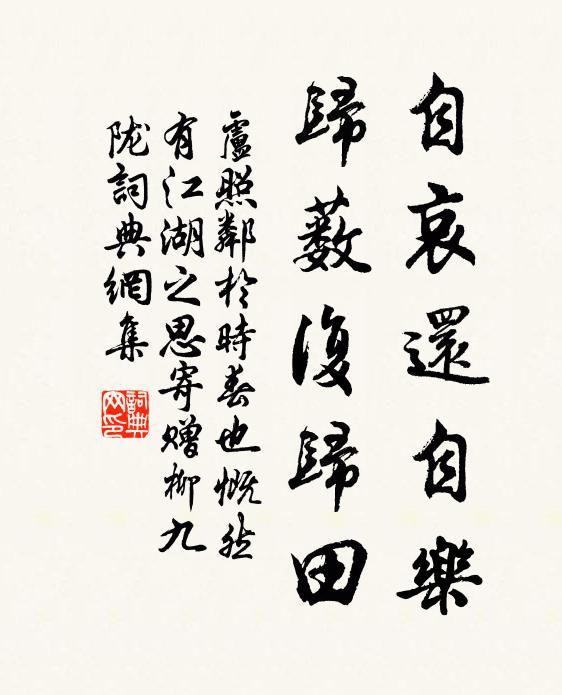 自哀還自樂
歸藪復歸田
盧照鄰於時春也慨然
有江湖之思寄贈柳九
陇詞典網集
詞典
网印